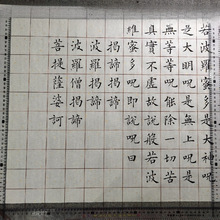 若波羅蜜多是大神呪
是大明呪是無上呪是
無等等呪能除一切苦
真實不虛故說般若波
羅蜜多呪即說呪曰
揭諦揭諦
波羅揭諦
波羅僧揭諦
菩提薩婆訶